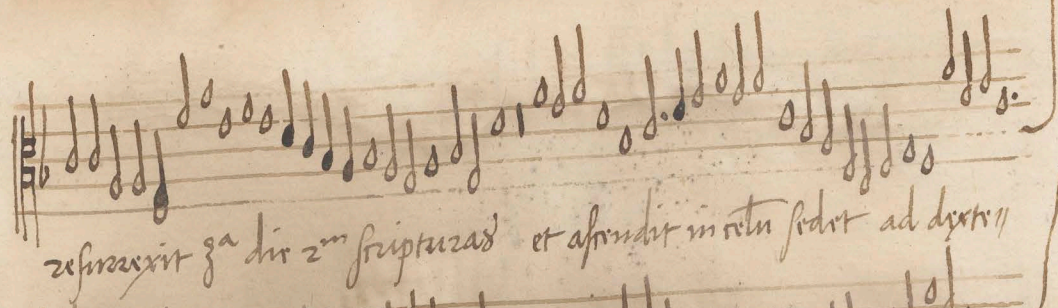 resurrexit 3ª die 2m scripturas et ascendit in celū sedet ad dexte